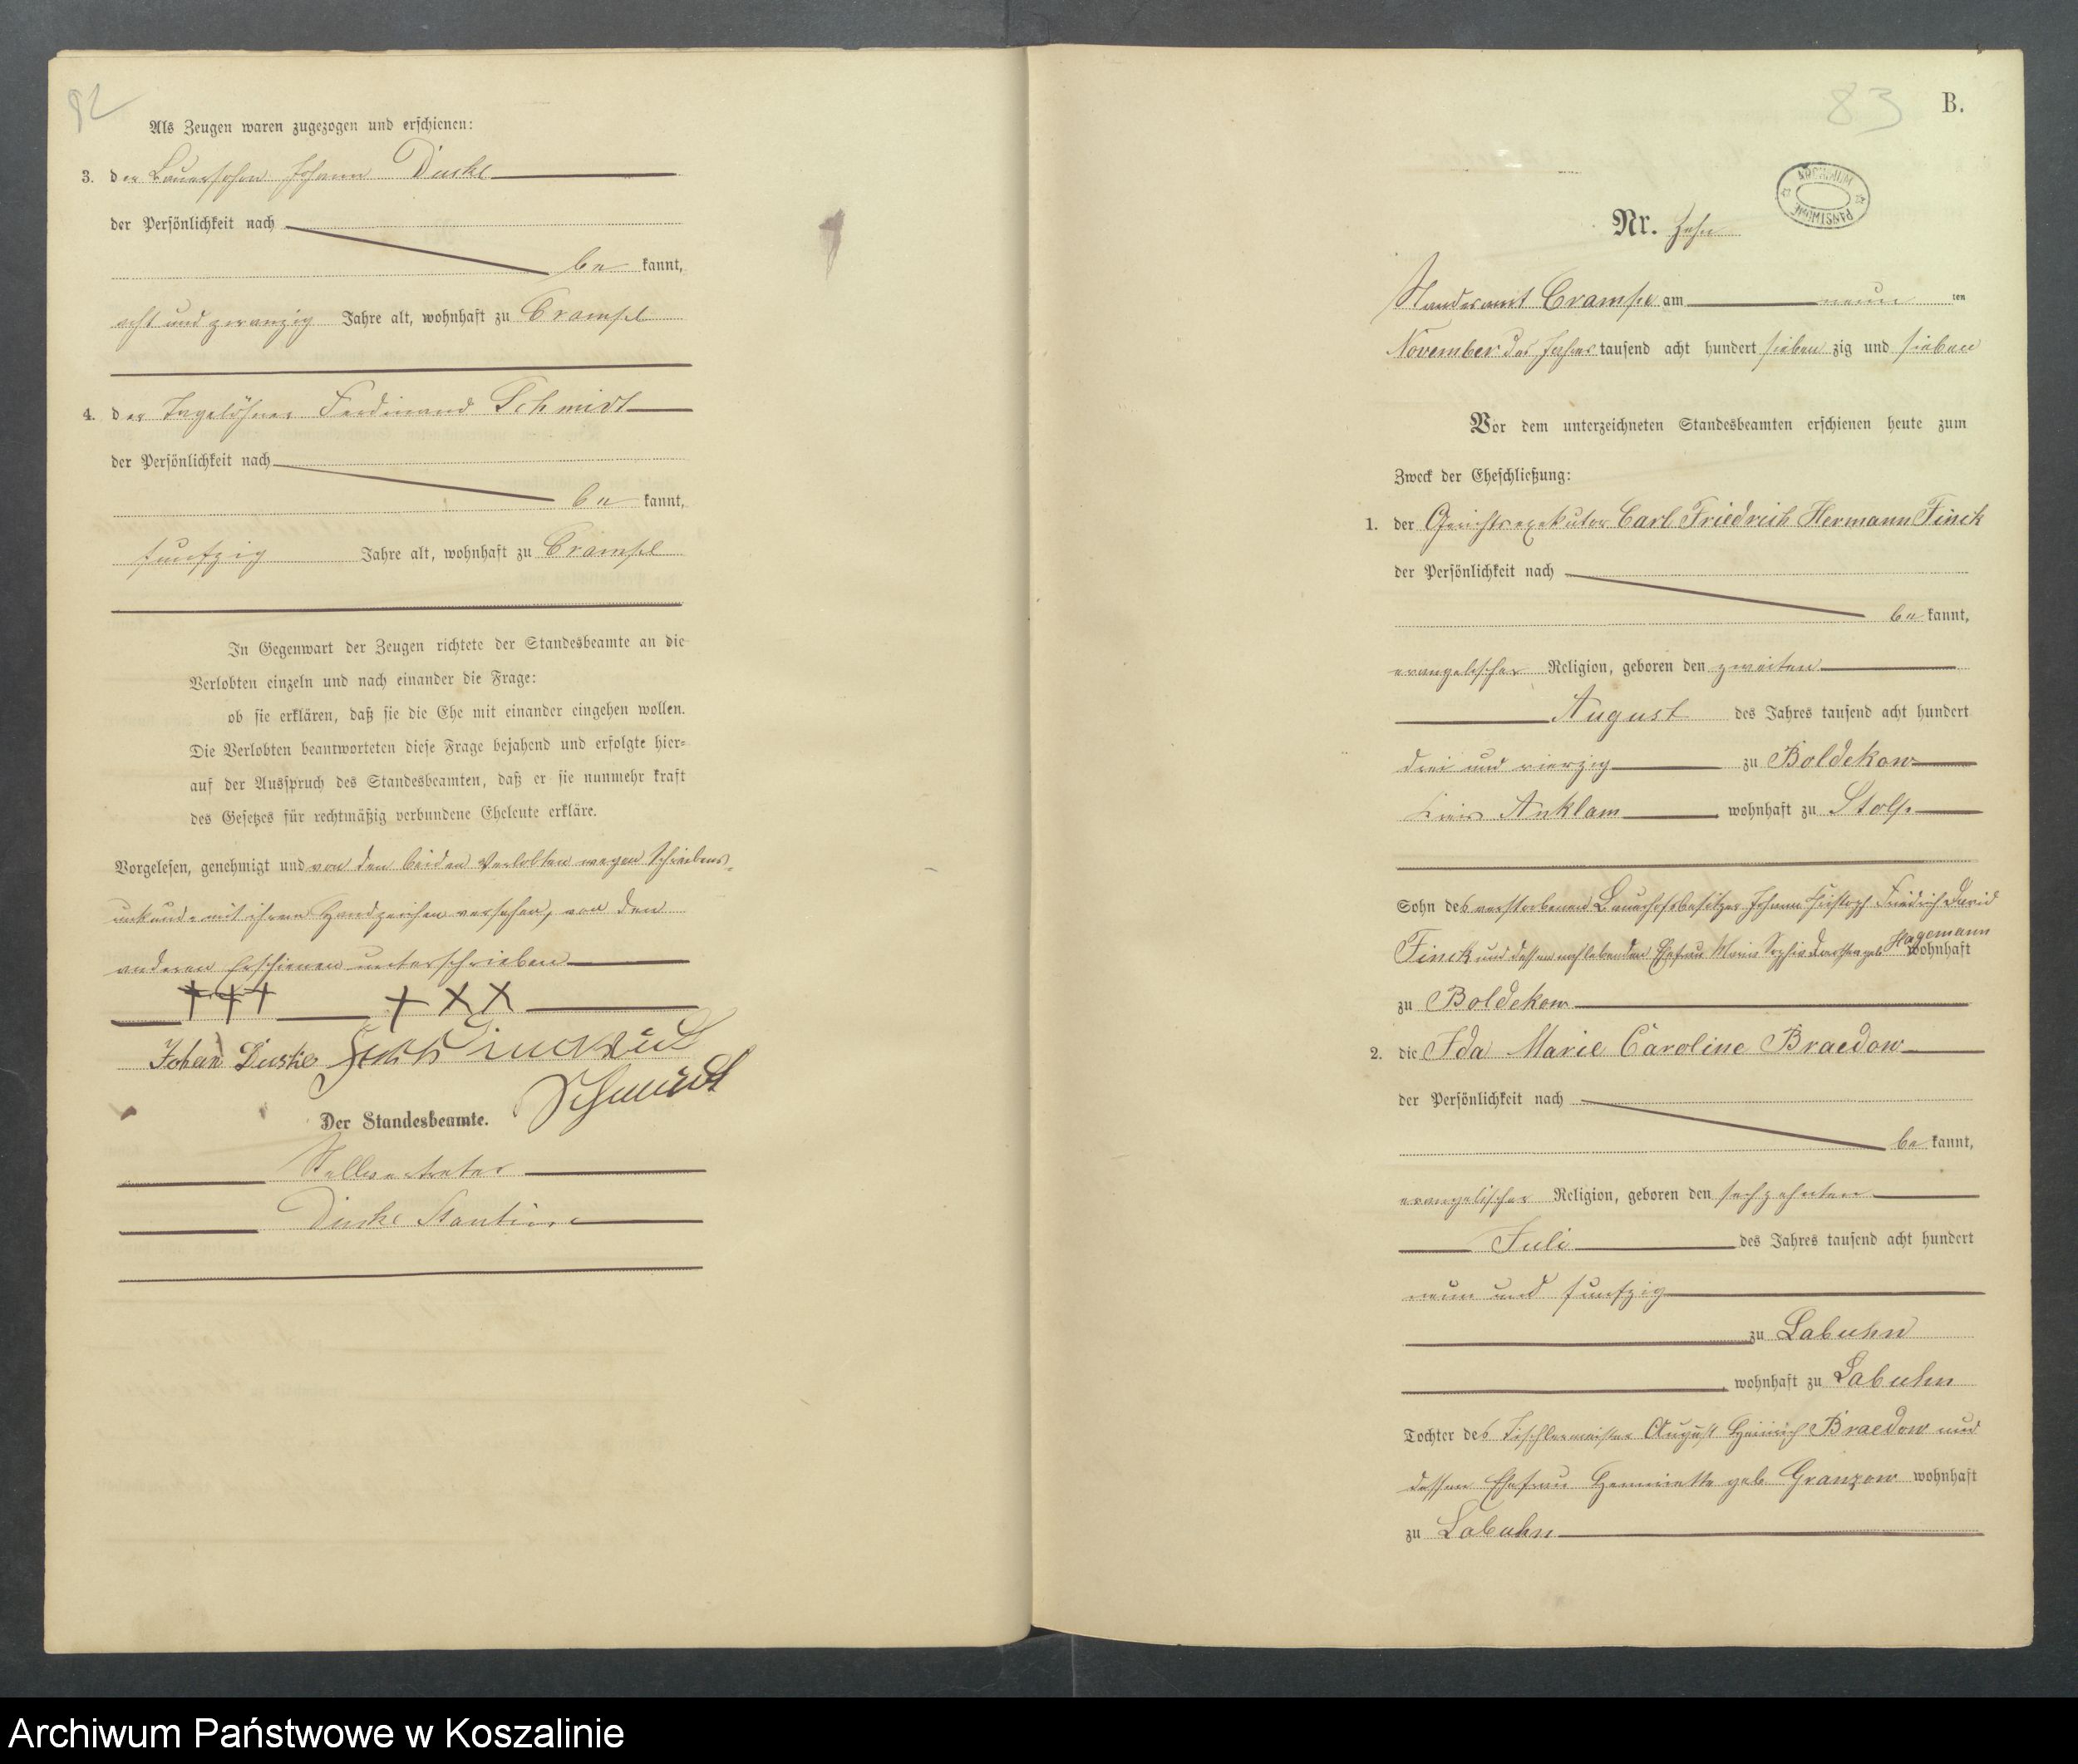 82
Als Zeugen waren zugezogen und erschienen:
3. der Bauersohn Johann Duske
der Persönlichkeit nach
be kannt,
acht und zwanzig Jahre alt, wohnhaft zu Crampe
4. der Tagelöhner Ferdinand Schmidt
der Persönlichkeit nach
be kannt,
funfzig Jahre alt, wohnhaft zu Crampe
In Gegenwart der Zeugen richtete der Standesbeamte an die
Verlobten einzeln und nach einander die Frage:
ob sie erklären, daß sie die Ehe mit einander eingehen wollen.
Die Verlobten beantworteten diese Frage bejahend und erfolgte hier-
auf der Ausspruch des Standesbeamten, daß er sie nunmehr kraft
des Gesetzes für rechtmäßig verbundene Eheleute erkläre.
Vorgelesen, genehmigt und von den beiden Verlobten wegen Schreibens-
unkunde mit ihrem Handzeichen versehen, von den
anderen Erschienen unterschrieben
+++ +XX
Johan Duske
Schmidt
Der Standesbeamte.
Stellvertreter
Duske
83
B.
ARCHIWUM PAŃSTWOWE
Nr. Zehn
Standesamt Crampe am neun ten
November des Jahres tausend acht hundert sieben zig und sieben
Vor dem unterzeichneten Standesbeamten erschienen heute zum
Zweck der Eheschließung:
1. der Gerichtsexekutor Carl Friedrich Hermann Finck
der Persönlichkeit nach
be kannt,
evangelischer Religion, geboren den zweiten
August des Jahres tausend acht hundert
drei und vierzig zu Boldekow
Kreis Anklam, wohnhaft zu Stolp
Sohn des verstorbenen Bauerhofsbesitzer Johann Christoph Friedrich David
Finck und dessen nachlebenden Ehefrau Marie Sophie geb Hagemann wohnhaft
zu Boldekow
2. die Ida Marie Caroline Braedow
der Persönlichkeit nach
be kannt,
evangelischer Religion, geboren den sechzehnten
Juli des Jahres tausend acht hundert
neun und funfzig
zu Labuhn
, wohnhaft zu Labuhn
Tochter des Tischlermeister August Heinrich Braedow und
dessen Ehefrau Henriette geb Granzow wohnhaft
zu Labuhn
Archiwum Państwowe w Koszalinie